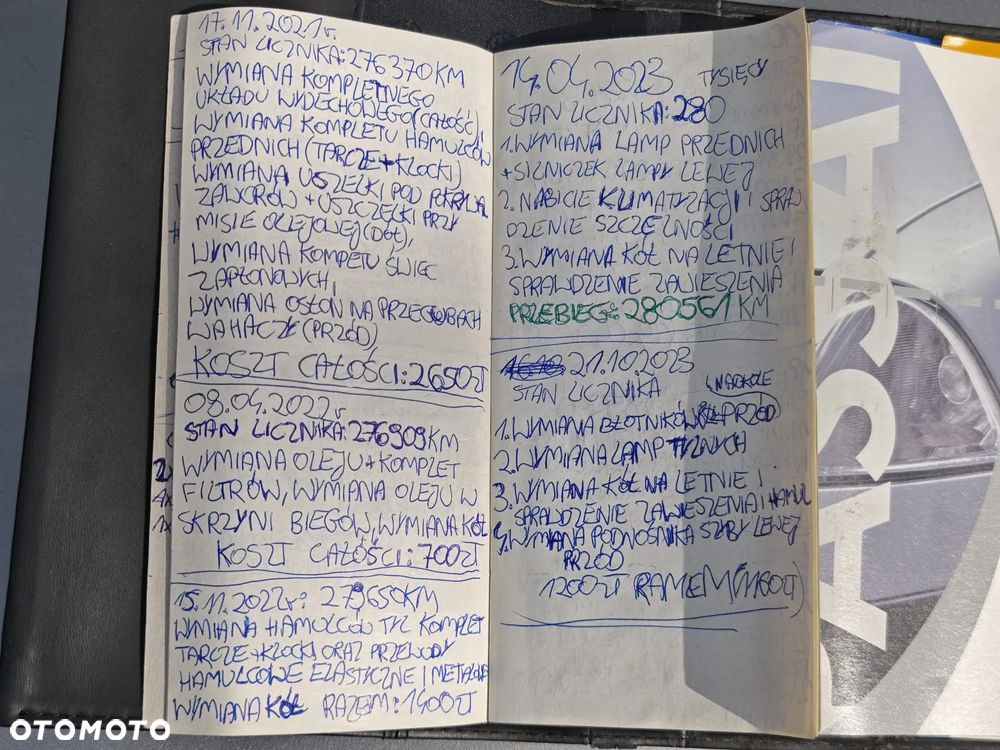 17.11.2021r.
STAN LICZNIKA: 276370KM
WYMIANA KOMPLETNEGO
UKŁADU WYDECHOWEGO (CAŁOŚĆ),
WYMIANA KOMPLETU HAMULCÓW
PRZEDNICH (TARCZE+KLOCKI)
WYMIANA USZELKI POD POKRYWĄ
ZAWORÓW + USZCZELKI PRZY
MISIE OLEJOWEJ (DÓŁ),
WYMIANA KOMPETU ŚWIEC
ZAPŁONOWYCH,
WYMIANA OSŁON NA PRZEGUBACH
WAHACZY (PRZÓD)
KOSZT CAŁOŚCI: 2650ZŁ
08.04.2022r
STAN LICZNIKA: 276909KM
WYMIANA OLEJU + KOMPLET
FILTRÓW, WYMIANA OLEJU W
SKRZYNI BIEGÓW, WYMIANA KÓŁ
KOSZT CAŁOŚCI: 700ZŁ
15.11.2022r: 279650KM
WYMIANA HAMULCÓW TYŁ KOMPLET
TARCZE+KLOCKI ORAZ PRZEWODY
HAMULCOWE ELASTYCZNE I METALOWE
WYMIANA KÓŁ RAZEM: 1400ZŁ
14.04.2023 TYSIĘCY
STAN LICZNIKA: 280
1. WYMIANA LAMP PRZEDNICH
+ SILNICZEK LAMPY LEWEJ
2. NABICIE KLIMATYZACJI I SPRAW
DZENIE SZCZELNOŚCI
3. WYMIANA KÓŁ NA LETNIE I
SPRAWDZENIE ZAWIESZENIA
PRZEBIEG: 280561KM
21.10.2023
STAN LICZNIKA
NADKOLE
1. WYMIANA BŁOTNIKÓW PRZÓD
2. WYMIANA LAMP TYLNYCH
3. WYMIANA KÓŁ NA LETNIE I
SPRAWDZENIE ZAWIESZENIA I HAMUL
4. WYMIANA PODNOŚNIKA SZYBY LEWEJ
PRZÓD
1200ZŁ RAZEM (1160ZŁ)
PASSAT
OTOMOTO